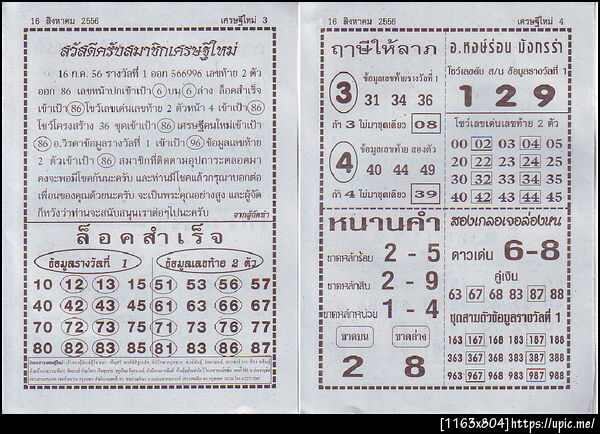 16 สิงหาคม 2556 เศรษฐีใหม่ 3
สวัสดีครับสมาชิกเศรษฐีใหม่
16 ก.ค. 56 รางวัลที่ 1 ออก 566996 เลขท้าย 2 ตัว
ออก 86 เลขหน้าปกเข้าเป้า 6 บน 6 ล่าง ล็อคสำเร็จ
เข้าเป้า 86 โชว์เลขเด่นเลขท้าย 2 ตัวหน้า 4 เข้าเป้า 86
โชว์โครงสร้าง 36 ชุดเข้าเป้า 86 เศรษฐีคนใหม่เข้าเป้า
86 อ.วิดาข้อมูลรางวัลที่ 1 เข้าเป้า 96 ข้อมูลเลขท้าย
2 ตัวเข้าเป้า 86 สมาชิกที่ติดตามอุปการะตลอดมา
คงจะพอมีโชคกันนะครับ และท่านมีโชคแล้วกรุณาบอกต่อ
เพื่อนของคุณด้วยนะครับ จะเป็นพระคุณอย่างสูง และผู้จัด
ก็หวังว่าท่านจะสนับสนุนเราต่อๆไปนะครับ จากผู้จัดทำ
ล็อคสำเร็จ
ข้อมูลรางวัลที่ 1 ข้อมูลเลขท้าย 2 ตัว
10 12 13 15 51 53 56 57
40 42 43 45 61 63 66 67
70 72 73 75 81 83 86 87
80 82 83 85 11 13 16 17
16 สิงหาคม 2556 เศรษฐีใหม่ 4
ฤาษีให้ลาภ
3 ข้อมูลเลขท้ายรางวัลที่ 1
31 34 36
ถ้า 3 ไม่มาชุดเดียว 08
4 ข้อมูลเลขท้าย สองตัว
40 44 49
ถ้า 4 ไม่มาชุดเดียว 39
อ.หงษ์ร่อน มังกรรำ
โชว์เลขดับ ส/น ข้อมูลรางวัลที่ 1
1 2 9
โชว์เลขเด่นเลขท้าย 2 ตัว
00 02 03 04 05
20 22 23 24 25
30 32 33 34 35
40 42 43 44 45
หนานคำ
ขาดหลักร้อย 2 - 5
ขาดหลักสิบ 2 - 9
ขาดหลักหน่วย 1 - 4
ขาดบน ขาดล่าง
2 8
สองเกลอเจอล่องหน
ดาวเด่น 6-8
คู่เงิน
63 67 68 83 87 88
ชุดสามตัวข้อมูลรางวัลที่ 1
163 167 168 183 187 188
363 367 368 383 387 388
963 967 968 983 987 988
[1163x804]https://upic.me/